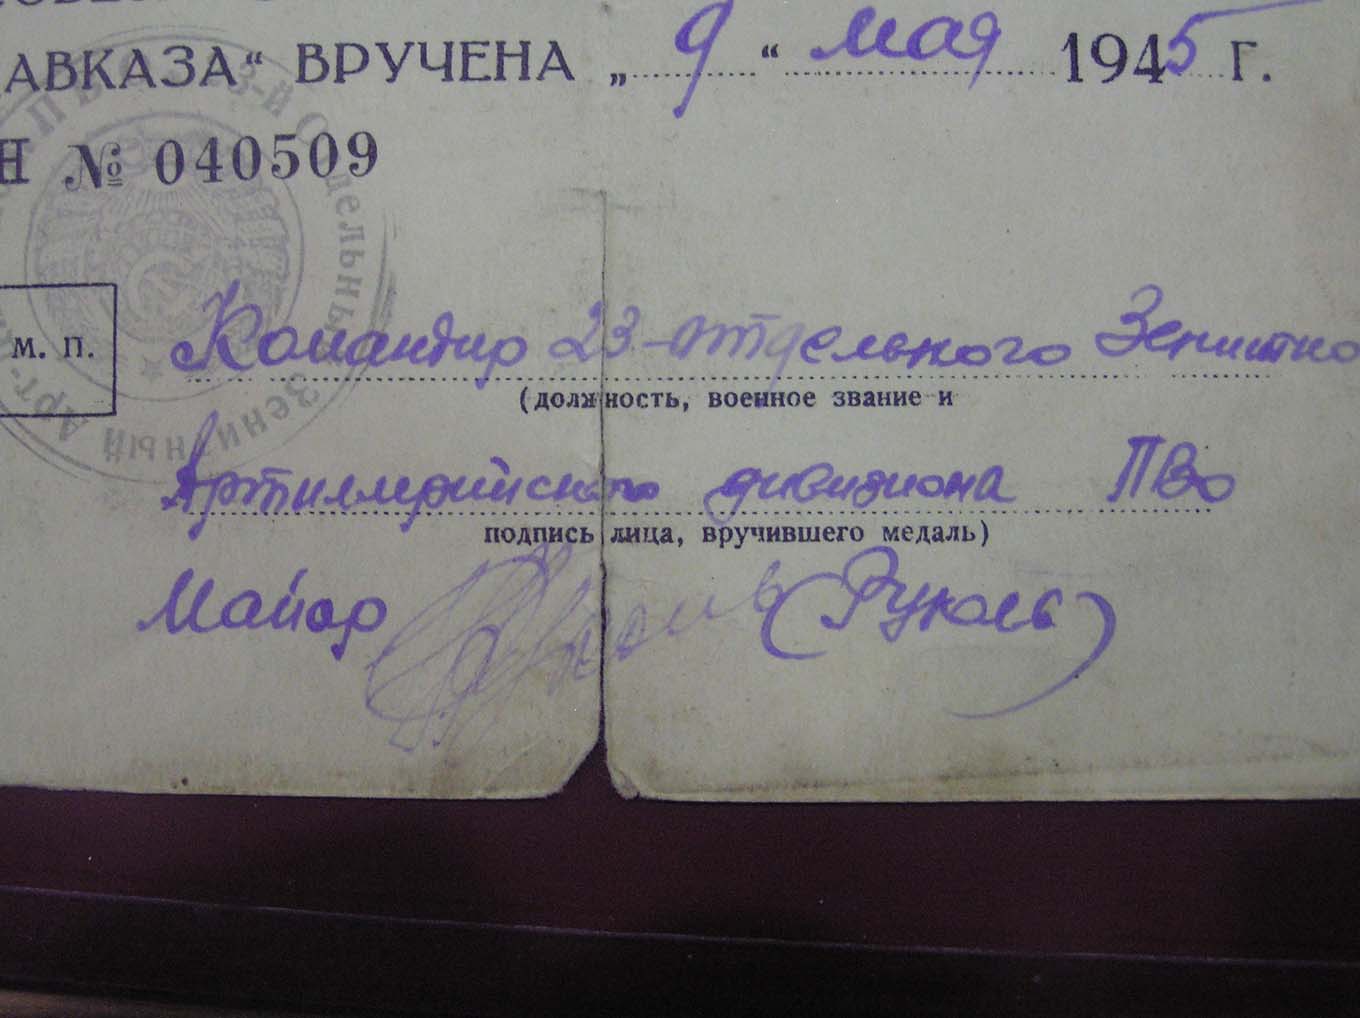 АВКАЗА“ ВРУЧЕНА „9“ мая 1945 г.
Н № 040509
М. П.
Командир 23-отдельного Зенитно
(должность, военное звание и
Артиллерийского дивизиона ПВО
подпись лица, вручившего медаль)
Майор (Рукаль)
23-й Отдельный Зенитный Арт-